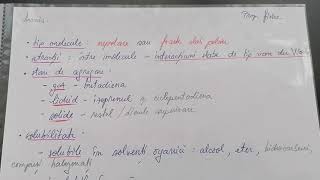 Prop. fizice
• tip molecule: nepolare sau foarte slab polare
• atracții: între molecule - interacțiuni slabe de tip van der Waals
• stare de agregare:
- gaz - butadiena
- lichid - izoprenul și ciclopentadiena
- solide - restul / dienele superioare
• solubilitate:
- solubile în solvenți organici: alcool, eter, hidrocarburi,
compuși halogenați